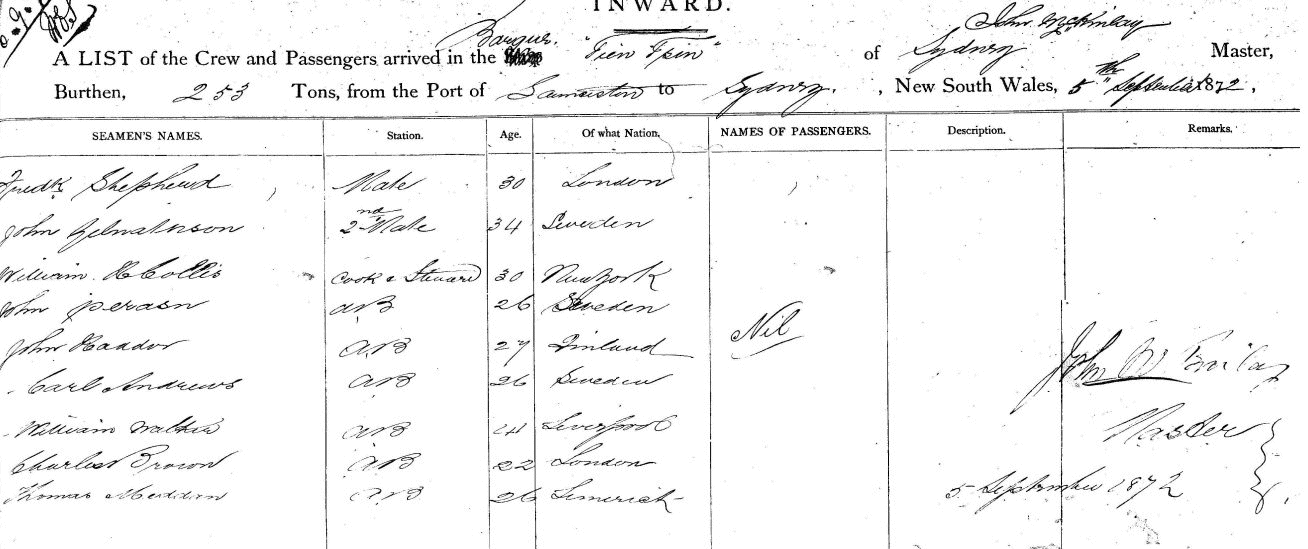 INWARD.
John McKinlay
A LIST of the Crew and Passengers arrived in the Barque "Tien Tsin" of Sydney Master,
Burthen, 253 Tons, from the Port of Launceston to Sydney. , New South Wales, 5th September 1872,
SEAMEN'S NAMES. Station. Age. Of what Nation. NAMES OF PASSENGERS. Description. Remarks.
Fredk Shepherd Mate 30 London
John 2nd Mate 34 Sweden
William H Collis Cook & Steward 30 New York
John AB 26 Sweden
John Haddor AB 27 Finland Nil
John
Carl Andrews AB 26 Sweden
William Walker AB Liverpool Master
Charles Brown AB 22 London
Thomas Meddan AB 26 Limerick 5 September 1872